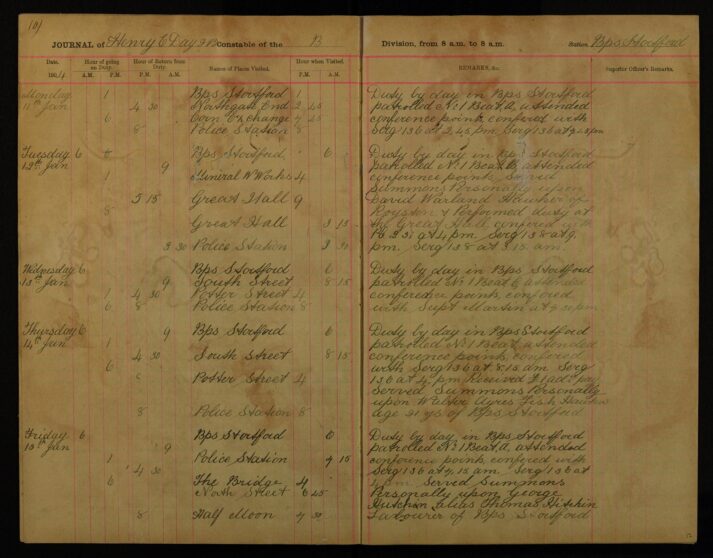 101
JOURNAL of Henry E Day 98 Constable of the B Division, from 8 a.m. to 8 a.m. Station, Bps Stortford
Date. Hour of going on Duty. Hour of Return from Duty. Names of Places Visited. Hour when Visited. REMARKS, &c. Superior Officer's Remarks.
1904 A.M. P.M. A.M. P.M. P.M. A.M.
Monday 1 Bps Stortford 1 Duty by day in Bps Stortford
11th Jan 4 30 Northgate End 2 45 patrolled No 1 Beat A attended
6 Corn Exchange 7 45 conference point conferred with
8 Police Station 8 Serg 136 at 2,45 pm. Serg 136 at
Tuesday 6 Bps Stortford 6 Duty by day in Bps Stortford
12th Jan 9 patrolled No 1 Beat attended
1 General W Works 4 conference point Served
Summons Personally upon
5 15 Great Hall 9 David Warland Hawker of
8 Royston & Performed duty at
Great Hall 3 15 the Great Hall conferred with
at 4 pm. Serg 138 at 9
3 30 Police Station 3 30 pm. Serg 138 at 3.15 am.
Wednesday 6 Bps Stortford 6 Duty by day in Bps Stortford
13th Jan 9 South Street 8 15 patrolled No 1 Beat attended
1 4 30 Potter Street 4 conference point conferred
6 8 Police Station 8 with Supt Martin at
Thursday 6 9 Bps Stortford 6 Duty by day in Bps Stortford
14th Jan 1 patrolled No 1 Beat attended
4 30 South Street 8 15 conference point conferred
6 with Serg 136 at 8.15 am Serg
8 Potter Street 4 136 at 4 pm Received
Served Summons Personally
upon Walter Ayres Fish Hawker
8 Police Station 8 age 21 ys of Bps Stortford
Friday 6 Bps Stortford 6 Duty by day in Bps Stortford
15th Jan 9 patrolled No 1 Beat A, attended
1 Police Station 7 15 conference point conferred with
4 30 Serg 136 at 7,15 am. Serg 136 at
6 The Bridge 4 4 pm Served Summons
North Street 6 45 Personally upon George
Hutchin alias Thomas Hitchin
8 Half Moon 7 30 Labourer of Bps Stortford